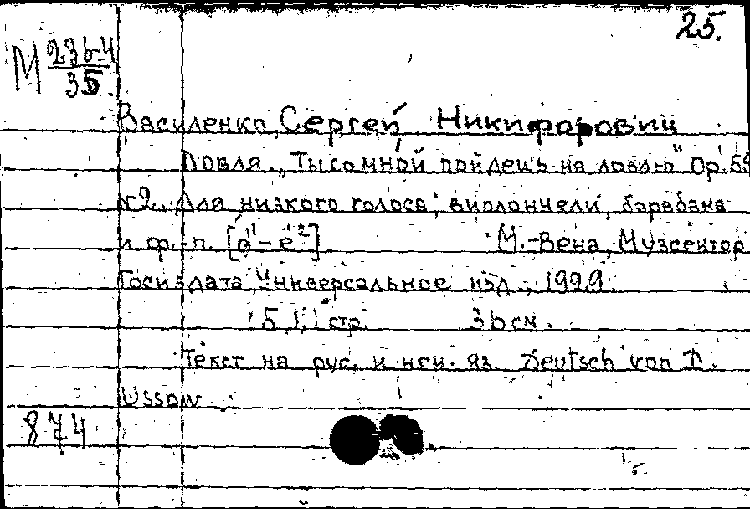 25.
М 236-4
35.
Василенко, Сергей Никифорович
Ловля. "Ты со мной пойдешь на ловлю" Op. 59
№2. Для низкого голоса, виолончели, барабана
и ф.-п. [d¹-e²] М.-Вена, Музсектор
Госиздата, Универсальное изд., 1929.
5, [1] стр. 36 см.
Текст на рус. и нем. яз. Deutsch von D.
Ussow.
874